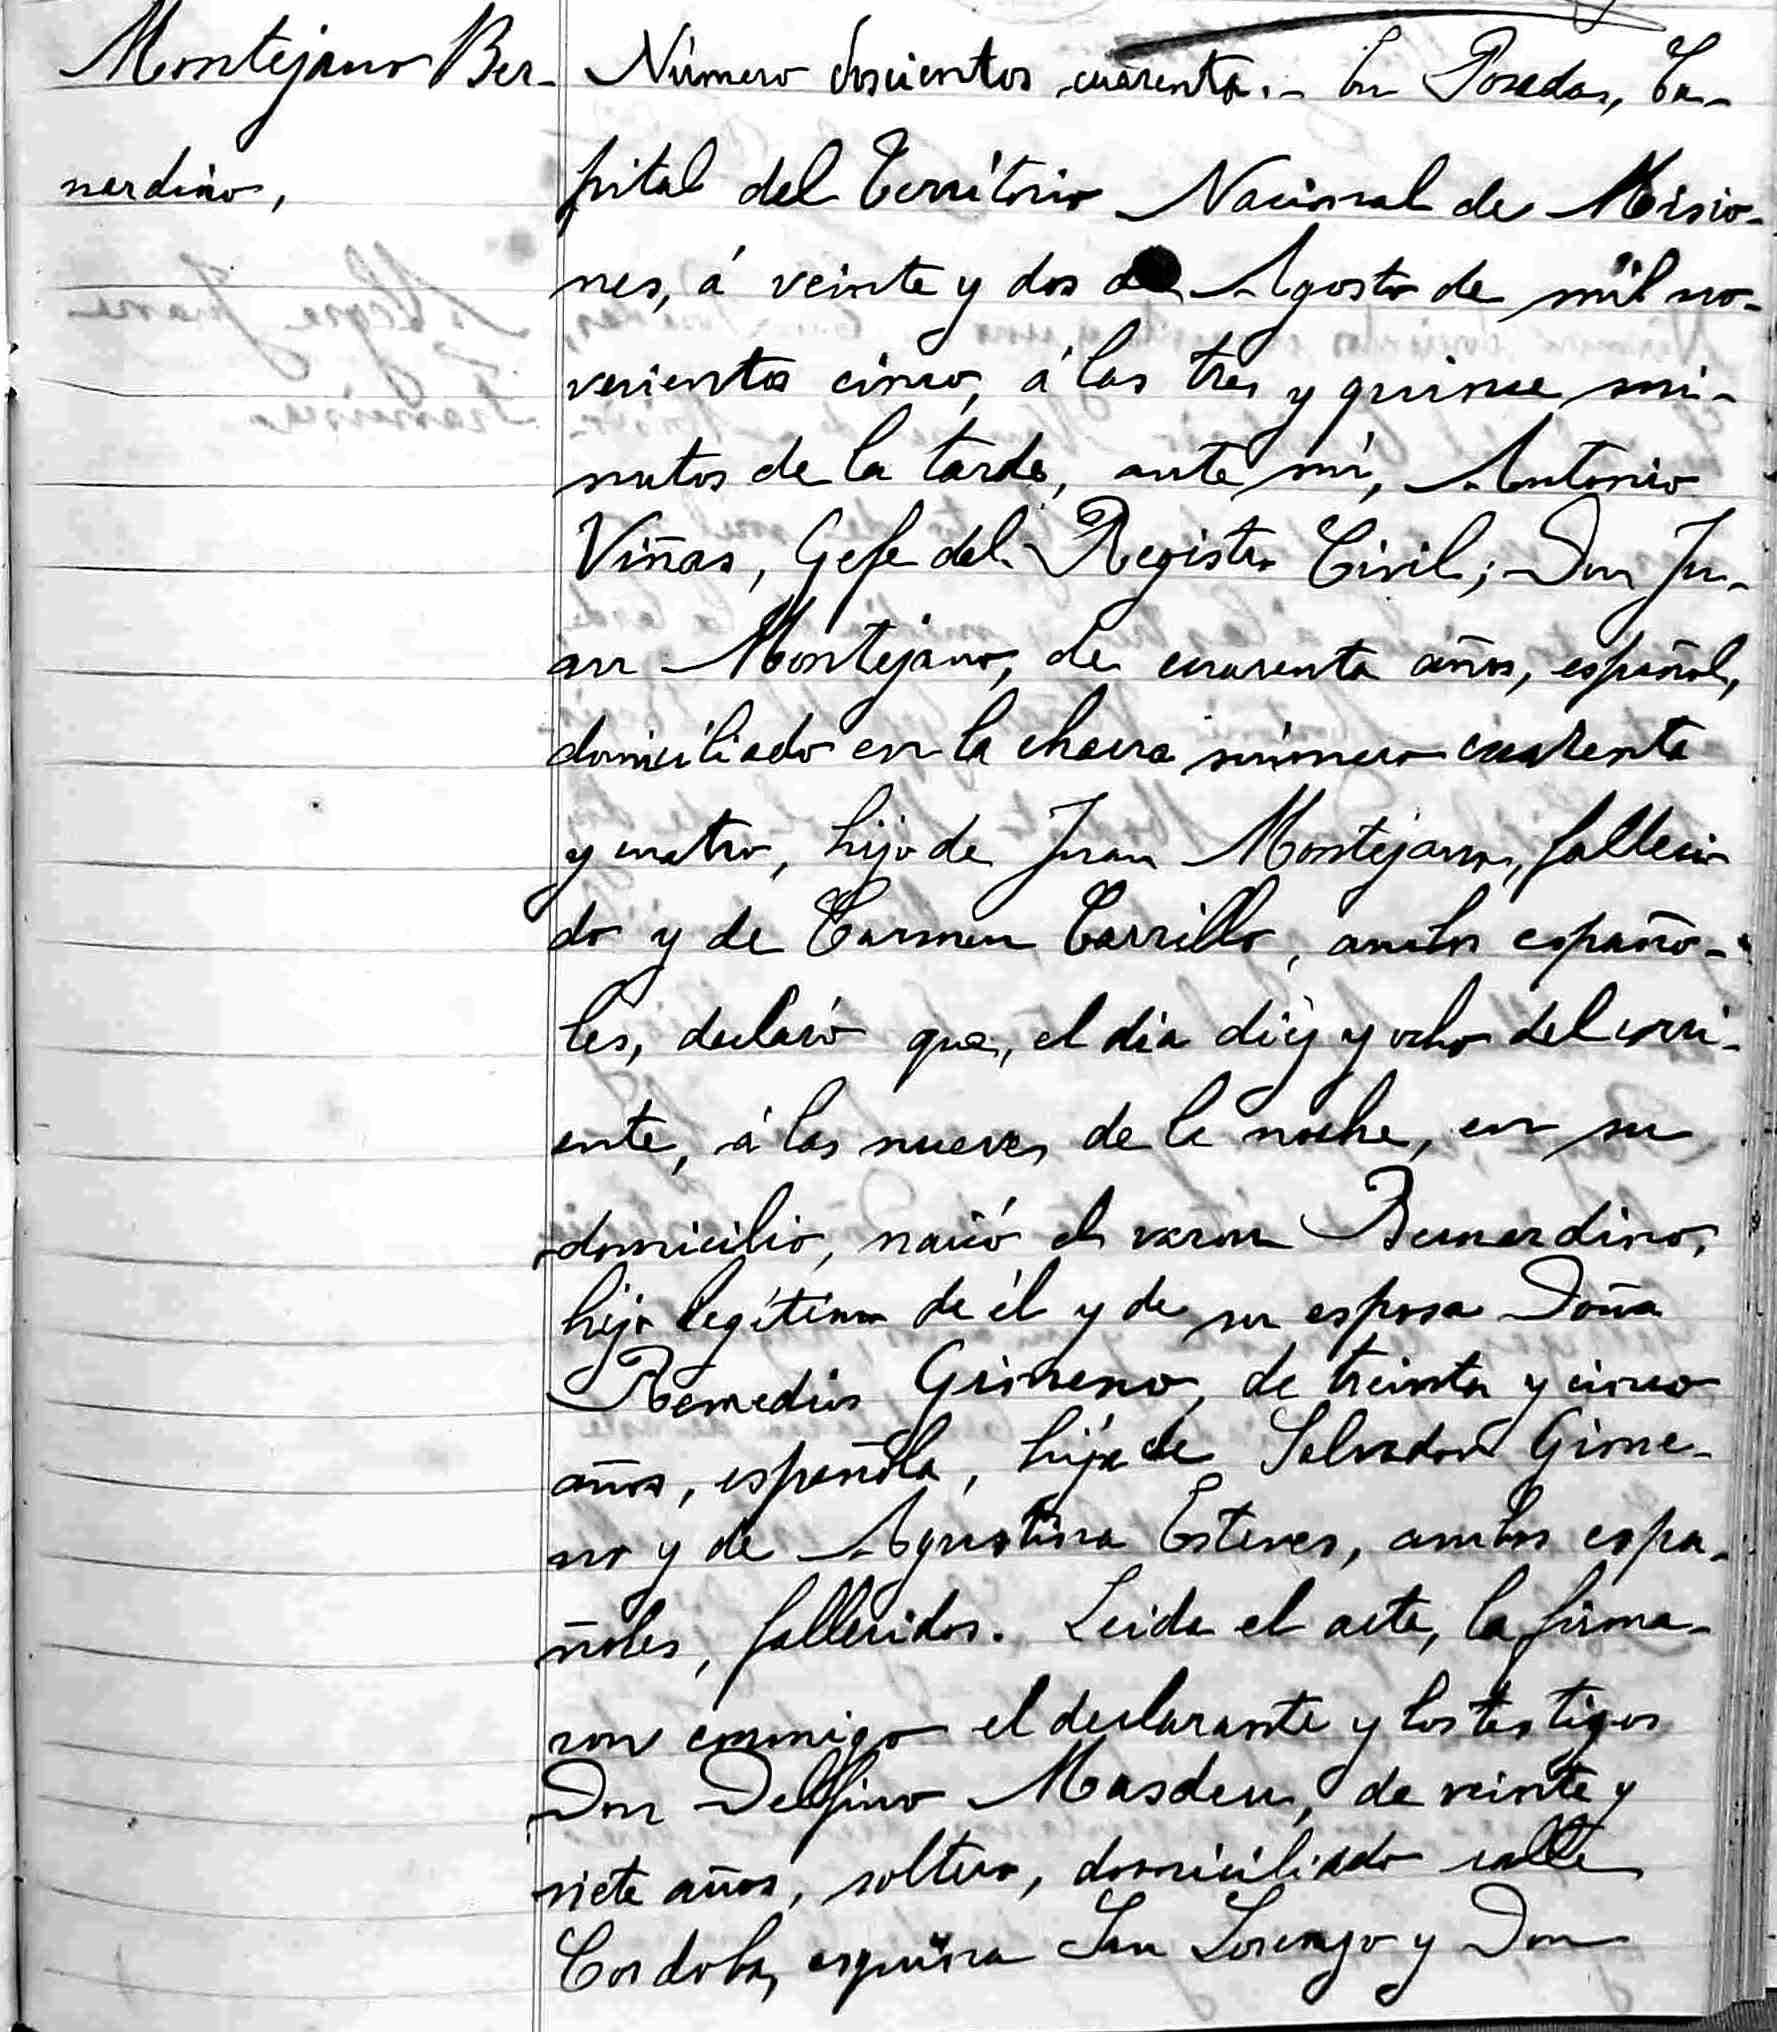 Montejano Ber-
nardino,
Número doscientos cuarenta.- En Posadas, Ca-
pital del Territorio Nacional de Misio-
nes, á veinte y dos de Agosto de mil no-
vecientos cinco, á las tres y quince mi-
nutos de la tarde, ante mí, Antonio
Viñas, Gefe del Registro Civil; Don Ju-
an Montejano, de cuarenta años, español,
domiciliado en la chacra número cuarenta
y cuatro, hijo de Juan Montejano, falleci-
do y de Carmen Carrillo, ambos españo-
les, declaró que, el dia diéz y ocho del corri-
ente, á las nueve, de la noche, en su
domicilio, nació el varon Bernardino,
hijo legítimo de él y de su esposa Doña
Remedios Gimeno, de treinta y cinco
años, española, hija de Salvador Gime-
no y de Agustina Esteves, ambos espa-
ñoles, fallecidos. Leida el acta, la firma-
ron conmigo el declarante y los testigos
Don Delfino Masdeu, de veinte y
siete años, soltero, domiciliado calle
Cordoba, esquina San Lorenzo y Don